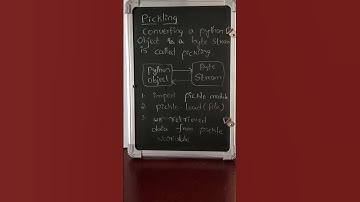 Pickling
Converting a python
Object to a byte stream
is called pickling
Python Byte
Object Stream
1. import pickle module
2. pickle.load(file)
3. we retrieved
data from pickle
variable